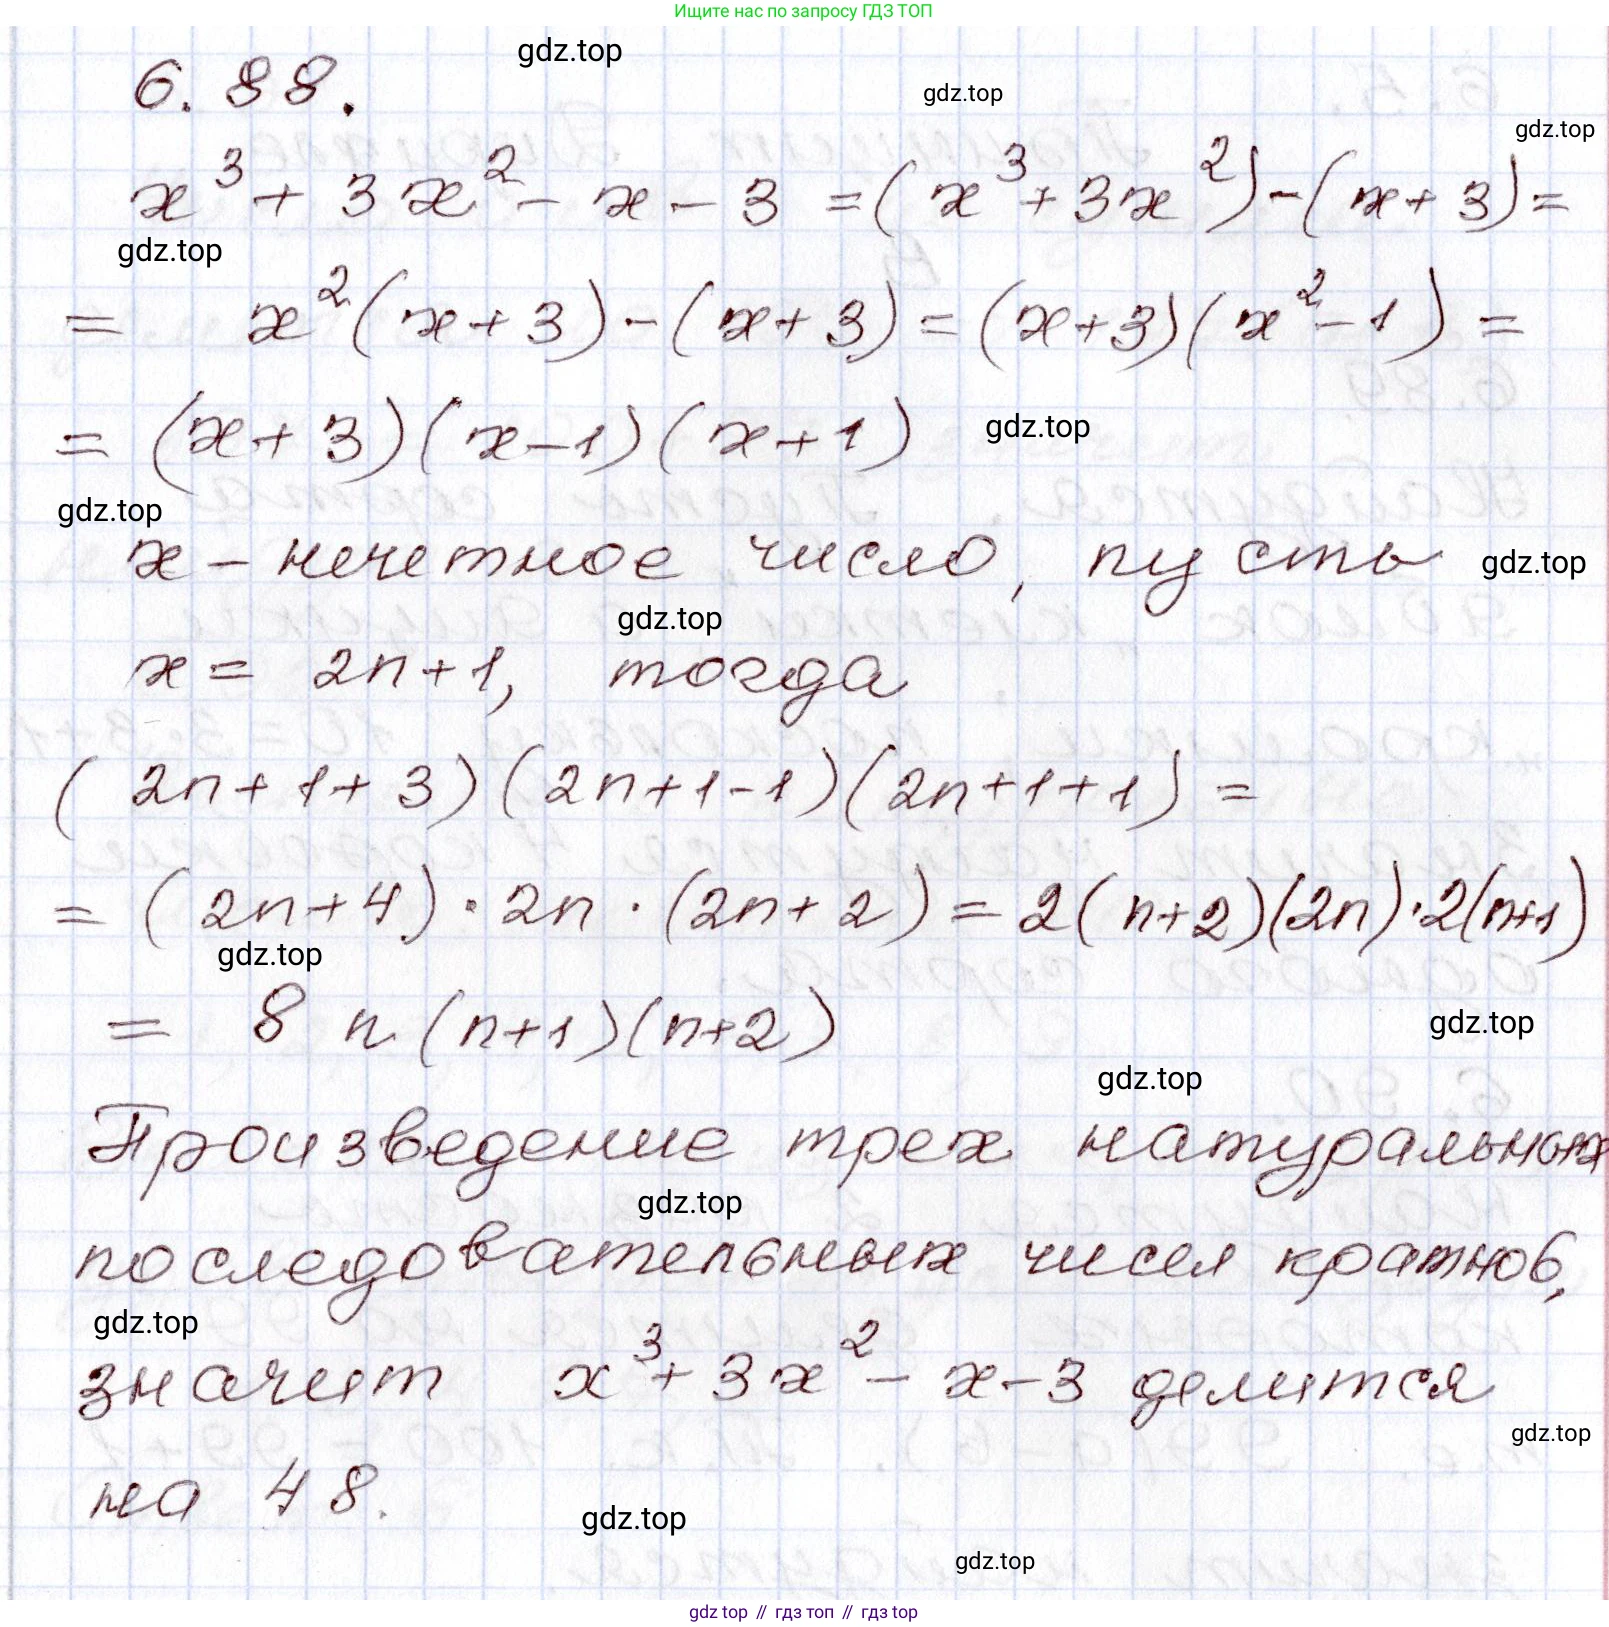 Ищите нас по запросу ГДЗ ТОП
gdz.top
6.88.
gdz.top
gdz.top
x³ + 3x² - x - 3 = (x³ + 3x²) - (x + 3) =
gdz.top
= x²(x + 3) - (x + 3) = (x + 3)(x² - 1) =
= (x + 3)(x - 1)(x + 1)
gdz.top
gdz.top
x - нечетное число, пусть
gdz.top
gdz.top
x = 2n + 1, тогда
(2n + 1 + 3)(2n + 1 - 1)(2n + 1 + 1) =
= (2n + 4) · 2n · (2n + 2) = 2(n + 2)(2n) · 2(n+1)
gdz.top
= 8 n (n + 1)(n + 2)
gdz.top
gdz.top
Произведение трех натуральных
gdz.top
последовательных чисел кратно 6,
gdz.top
значит x³ + 3x² - x - 3 делится
gdz.top
на 48.
gdz.top
gdz.top
gdz top // гдз топ // гдз top